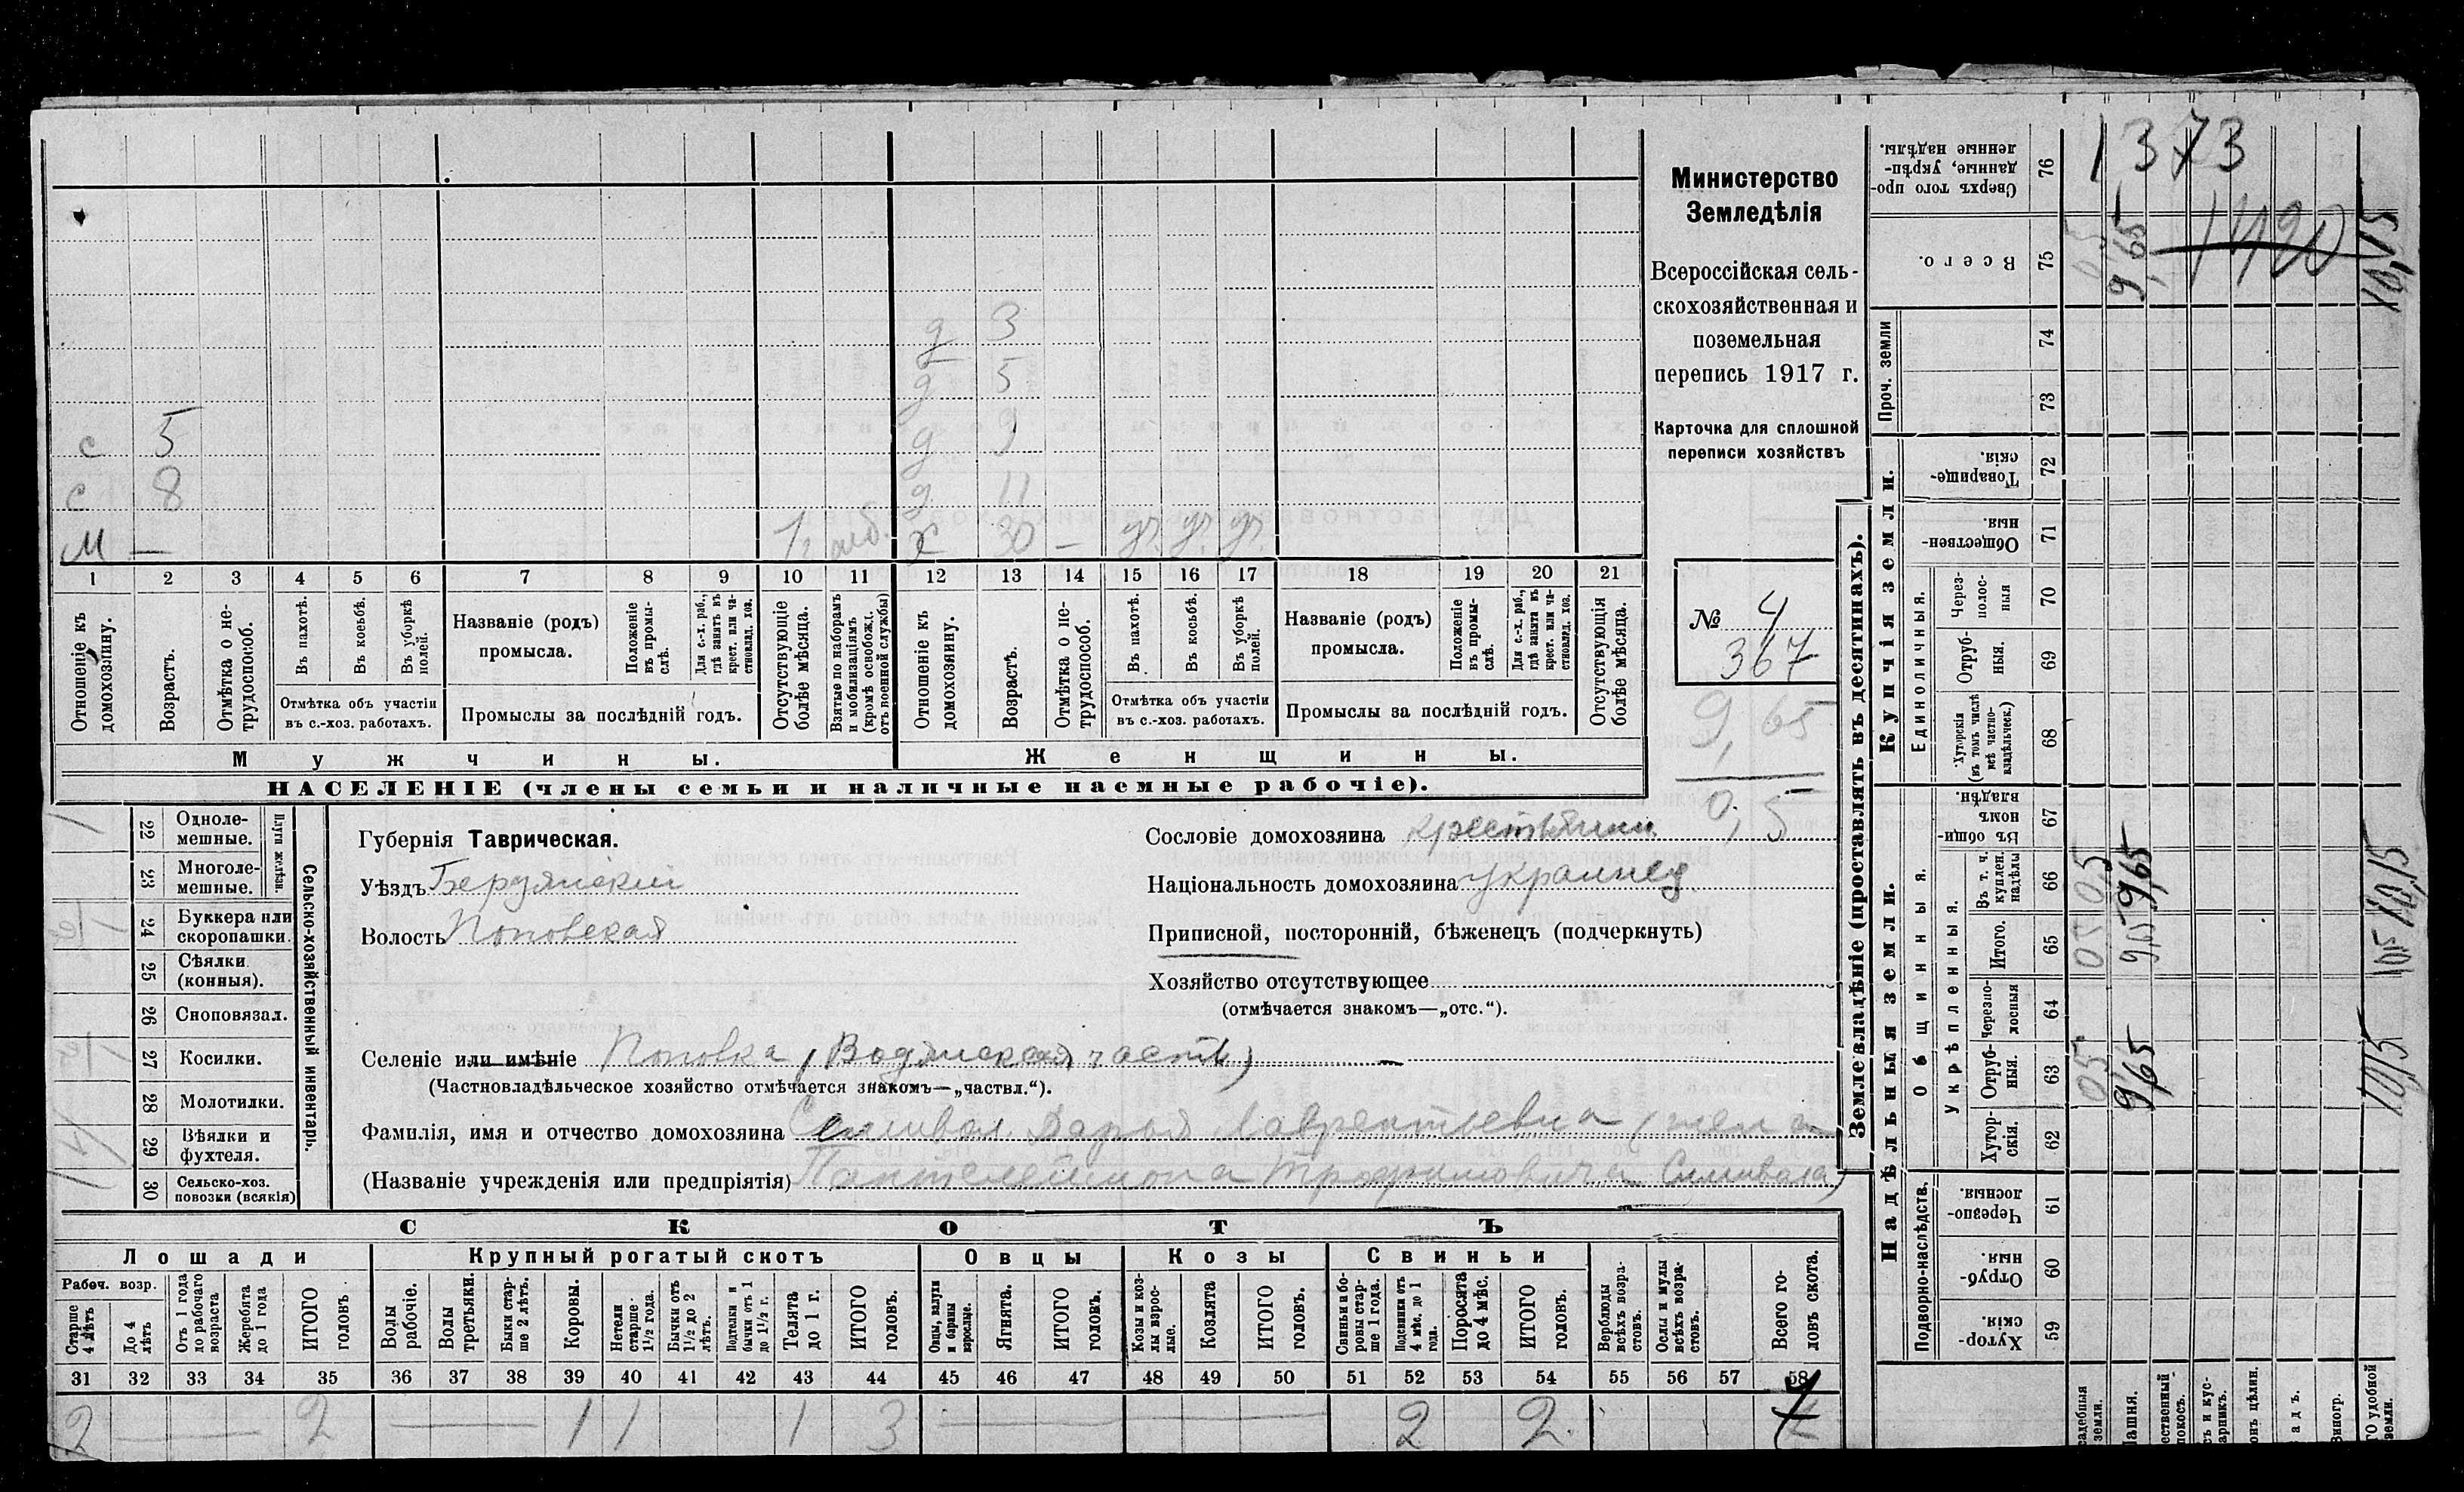 Министерство
Земледѣлія
Всероссійская сель-
скохозяйственная и
поземельная
перепись 1917 г.
Карточка для сплошной
переписи хозяйствъ
№ 4
367
9,65
0,5
д 3
д 5
с 5 д 9
с 8 д 11
м — х 30 —
1 2 3 4 5 6 7 8 9 10 11 12 13 14 15 16 17 18 19 20 21
Отношеніе къ домохозяину.
Возрастъ.
Отмѣтка о не-трудоспособ.
Въ пахотѣ.
Въ косьбѣ.
Въ уборкѣ полей.
Отмѣтка объ участіи
въ с.-хоз. работахъ.
Названіе (родъ)
промысла.
Положеніе въ промы-слѣ.
Для с.-х. раб., гдѣ занятъ въ крест. или ча-стновлад. хоз.
Промыслы за послѣдній годъ.
Отсутствующіе болѣе мѣсяца.
Взятые по наборамъ и мобилизаціямъ (кромѣ освобожд. отъ военной службы)
Отношеніе къ домохозяину.
Возрастъ.
Отмѣтка о не-трудоспособ.
Въ пахотѣ.
Въ косьбѣ.
Въ уборкѣ полей.
Отмѣтка объ участіи
въ с.-хоз. работахъ.
Названіе (родъ)
промысла.
Положеніе въ промы-слѣ.
Для с.-х. раб., гдѣ занята въ крест. или ча-стновлад. хоз.
Промыслы за послѣдній годъ.
Отсутствующія болѣе мѣсяца.
Мужчины.
Женщины.
НАСЕЛЕНІЕ (члены семьи и наличные наемные рабочіе).
Сельско-хозяйственный инвентарь.
Плуги желѣзн.
22 Одноле-мешные.
23 Многоле-мешные.
24 Буккера или скоропашки.
25 Сѣялки (конныя).
26 Сноповязал.
27 Косилки.
28 Молотилки.
29 Вѣялки и фухтеля.
30 Сельско-хоз. повозки (всякія)
Губернія Таврическая.
Уѣздъ Бердянскій
Волость Поповская
Сословіе домохозяина крестьянин
Національность домохозяина украинец
Приписной, посторонній, бѣженецъ (подчеркнуть)
Хозяйство отсутствующее
(отмѣчается знакомъ—„отс.“).
Селеніе или имѣніе Поповка (Водянская часть)
(Частновладѣльческое хозяйство отмѣчается знакомъ—„частвл.“).
Фамилія, имя и отчество домохозяина Сшивая Дарья Лаврентьевна (жена
(Названіе учрежденія или предпріятія) Пантелеймона Трофимовича Сшивала)
СКОТЪ
Лошади
Крупный рогатый скотъ
Овцы
Козы
Свиньи
Рабоч. возр.
Старше 4 лѣтъ
До 4 лѣтъ
Отъ 1 года до рабочаго возраста
Жеребята до 1 года
ИТОГО головъ
Волы рабочіе.
Волы третьяки.
Быки стар-ше 2 лѣтъ.
Коровы.
Нетели старше 1½ года.
Бычки отъ 1½ до 2 лѣтъ.
Подтелки и бычки отъ 1 до 1½ г.
Телята до 1 г.
ИТОГО головъ.
Овцы, валухи и бараны взрослые.
Ягнята.
ИТОГО головъ.
Козы и коз-лы взрос-лые.
Козлята
ИТОГО головъ.
Свиньи и бо-ровы стар-ше 1 года.
Подсвинки отъ 4 мѣс. до 1 года.
Поросята до 4 мѣс.
ИТОГО головъ.
Верблюды всѣхъ возра-стовъ.
Ослы и мулы всѣхъ возра-стовъ.
Всего го-ловъ скота.
31 32 33 34 35 36 37 38 39 40 41 42 43 44 45 46 47 48 49 50 51 52 53 54 55 56 57 58
2 — 2 — 1 1 1 3 — 2 2 7
Землевладѣніе (проставлять въ десятинахъ).
Купчія земли.
Надѣльныя земли.
76 Сверхъ того про-данные, укрѣп-ленные надѣлы.
75 Всего.
Проч. земли
74
73
72 Товарище-скія.
71 Обществен-ныя.
Единоличныя.
70 Через-полос-ныя
69 Отруб-ныя.
68 Хуторскія (въ томъ числѣ всѣ частно-владѣльческ.)
Общинныя.
67 Въ общин-номъ владѣн.
Укрѣпленныя.
66 Въ т. ч. куплен. надѣлы
65 Итого.
64 Черезпо-лосныя
63 Отруб-ныя.
62 Хутор-скія.
Подворно-наслѣдств.
61 Черезпо-лосныя.
60 Отруб-ныя.
59 Хутор-скія.
1373
1420
05 9,65 10,15
05 9,65 10,15
05 9,65 10,15
05 9,65 10,15